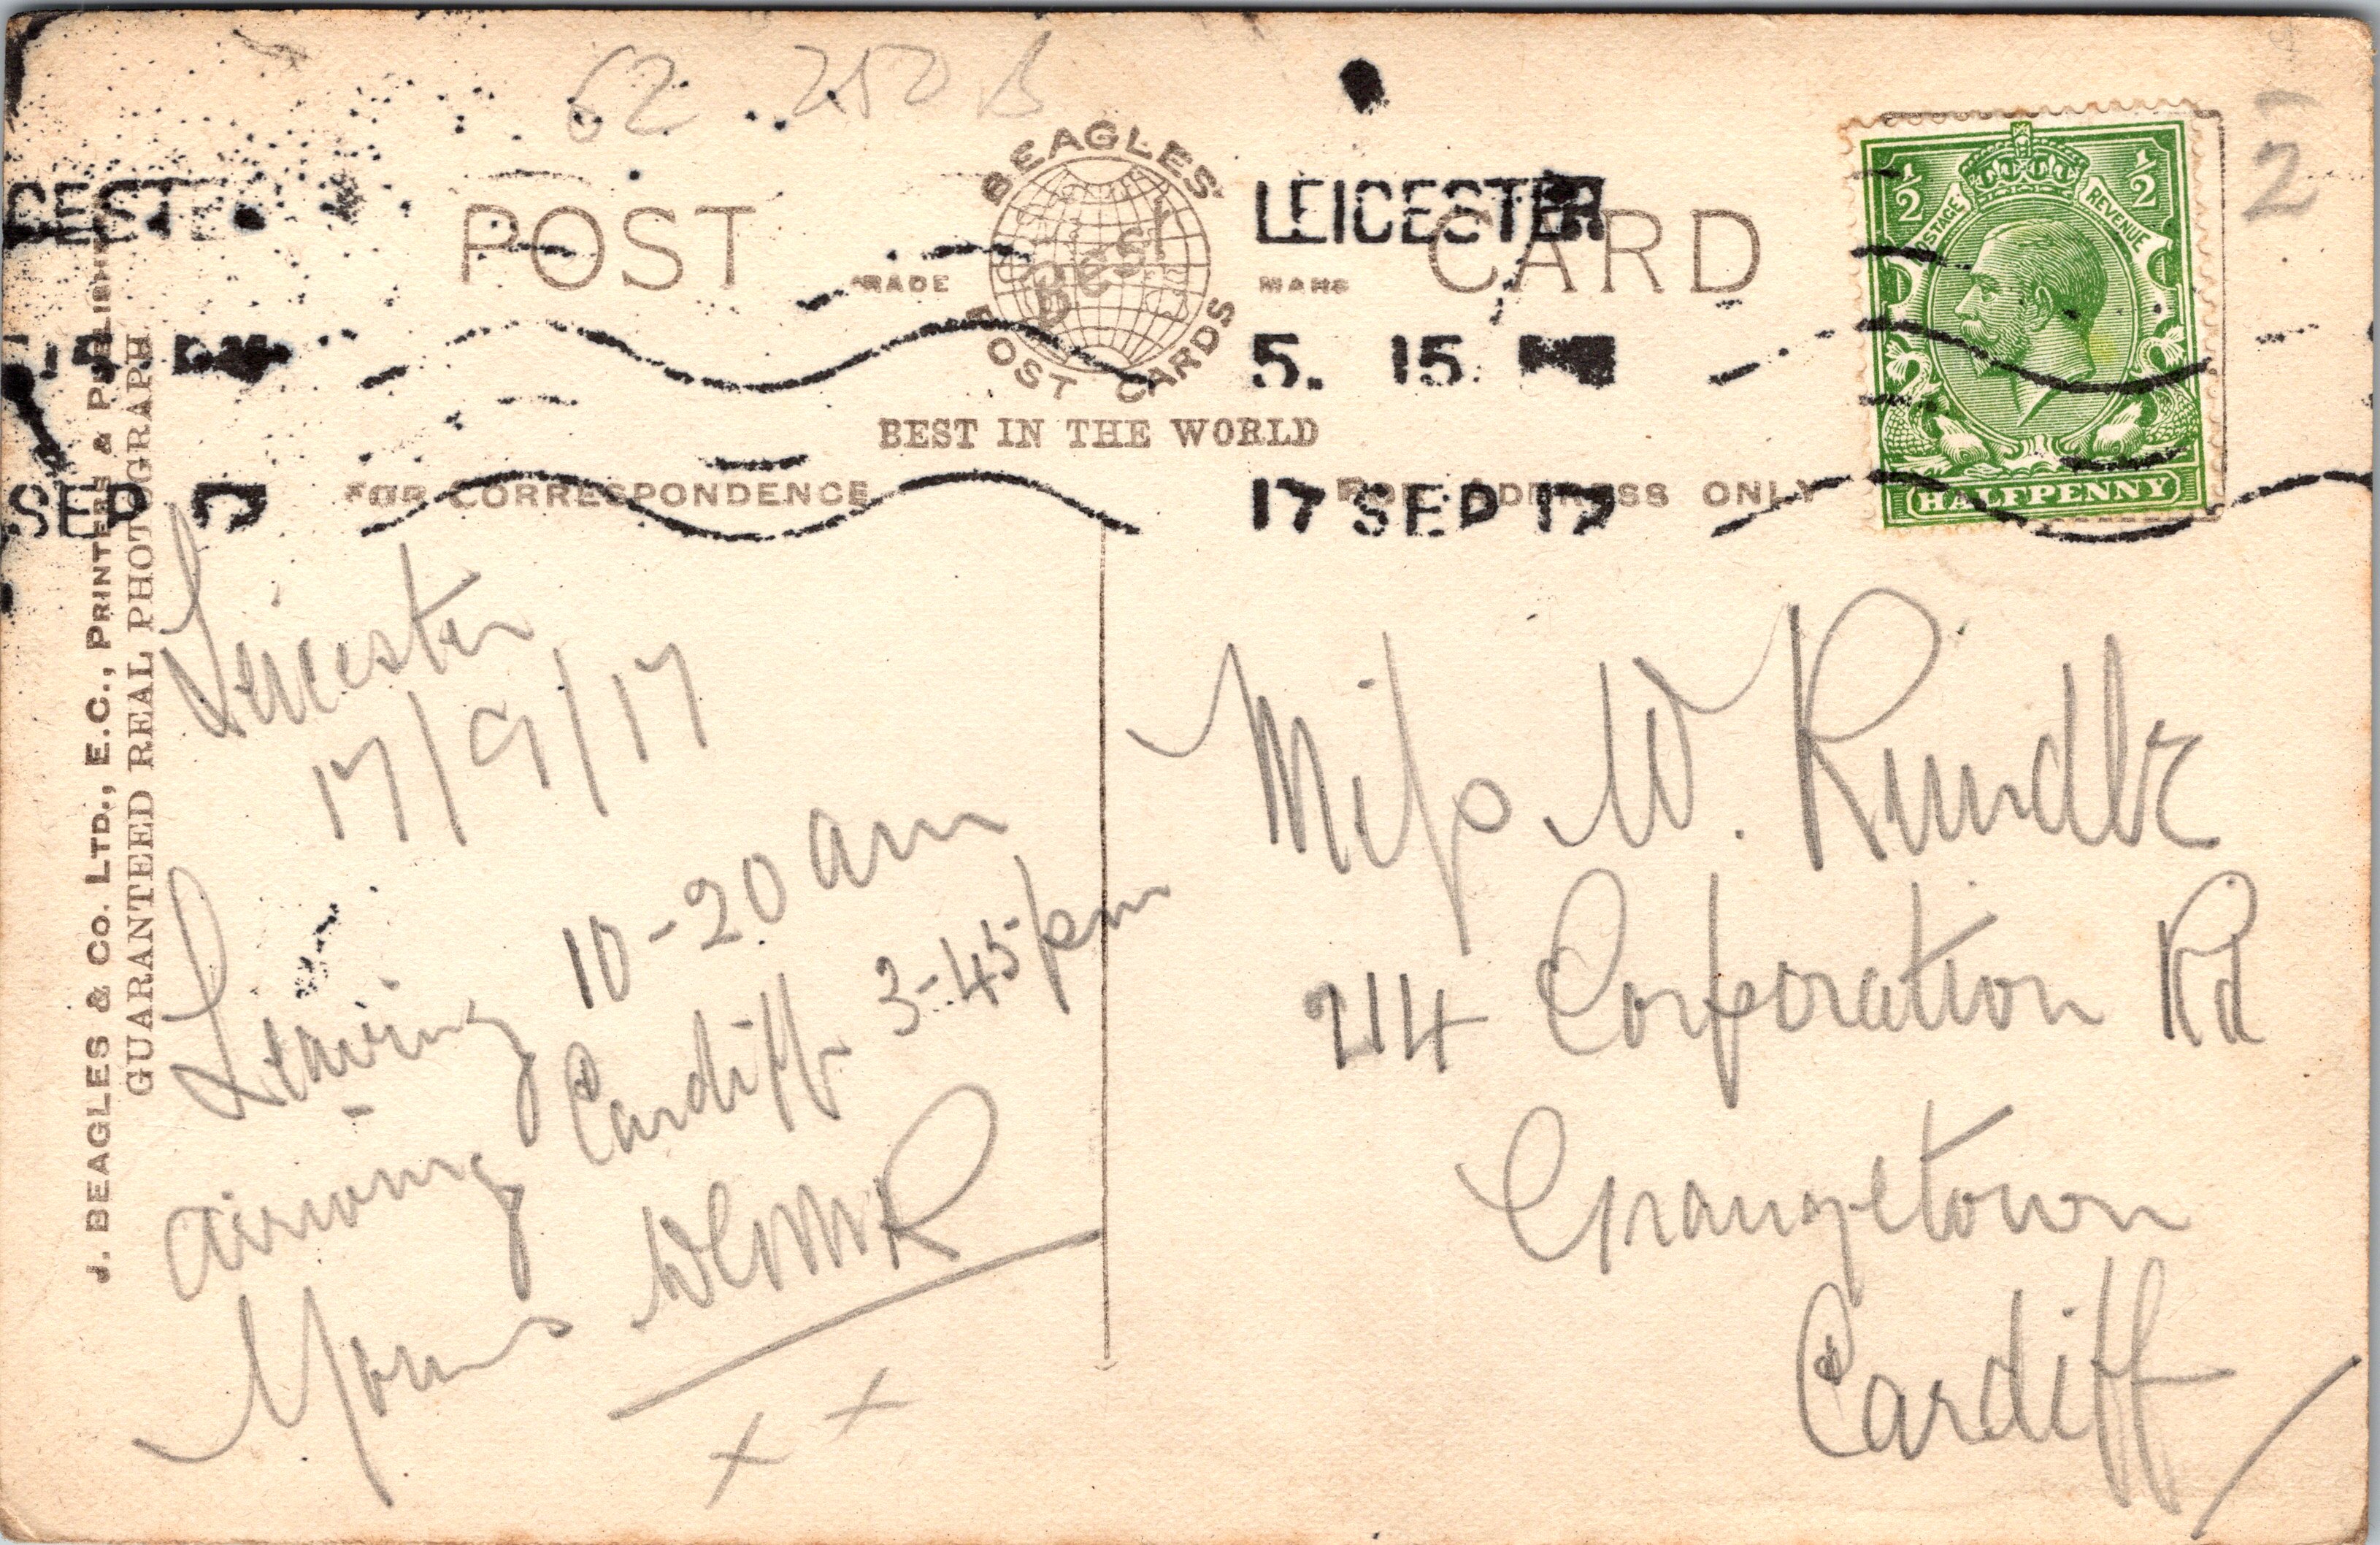 62 250 B
2
BEAGLES'
Best
POST CARDS
POST CARD
TRADE MARK
BEST IN THE WORLD
FOR CORRESPONDENCE
FOR ADDRESS ONLY
LEICESTER
5. 15 PM
17 SEP 17
SEP
1/2 1/2
POSTAGE REVENUE
HALFPENNY
J. BEAGLES & Co. LTD., E.C., PRINTERS & PUBLISHERS
GUARANTEED REAL PHOTOGRAPH
Leicester
17/9/17
Leaving 10-20 am
arriving Cardiff 3-45 pm
Yours
x x
Miss W. Rundle
214 Corporation Rd
Grangetown
Cardiff